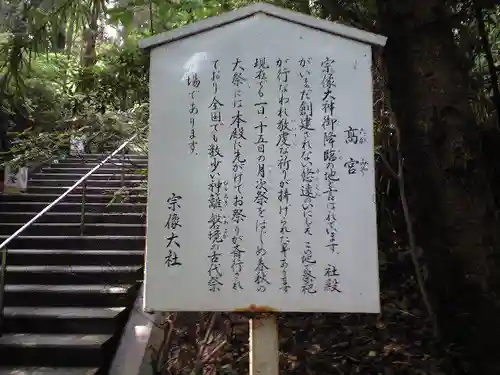 高宮
たか みや
宗像大神御降臨の地と言はれます。社殿
がいまだ創建されない悠遠のいにしえこの地で祭祀
が行なわれ敬虔な祈りが捧げられた所であります
現在でも一日、十五日の月次祭をはじめ春秋の
大祭には本殿に先がけてお祭りが斎行されて
ており全国でも数少い神籬磐境の古代祭
場であります。
宗像大社